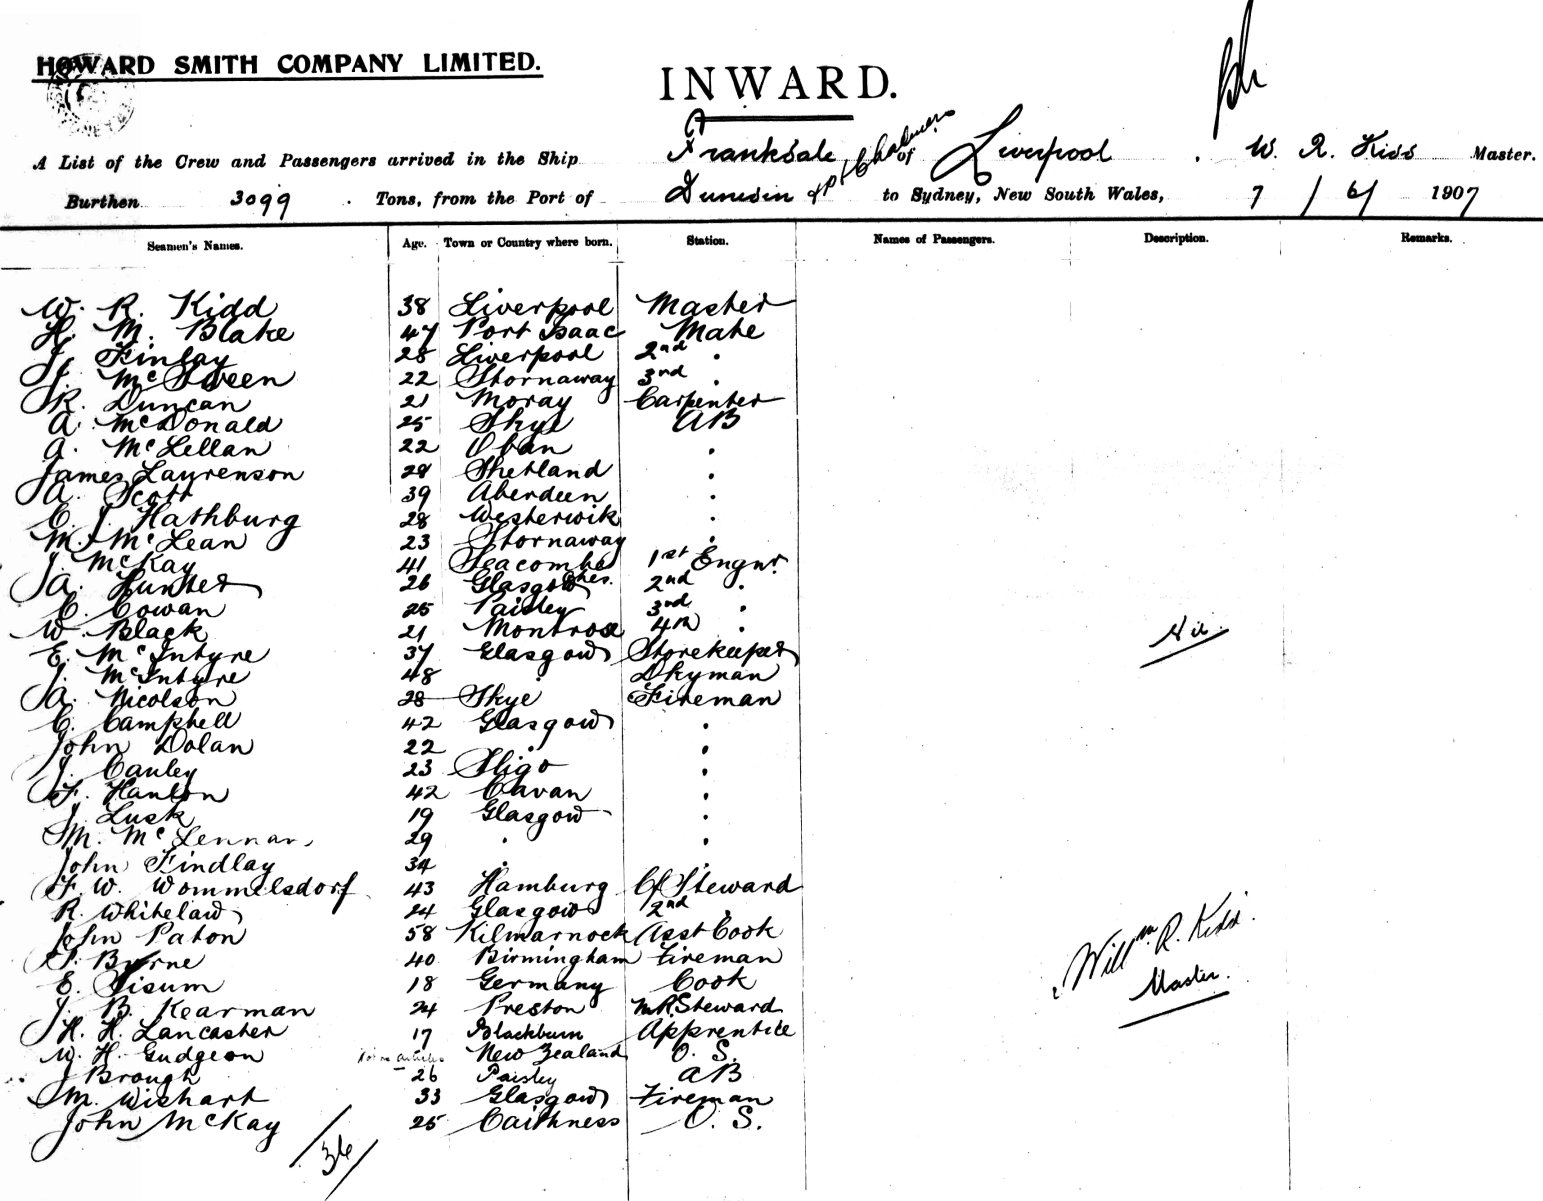 HOWARD SMITH COMPANY LIMITED.
INWARD.
A List of the Crew and Passengers arrived in the Ship Franksdale of Liverpool. W. R. Kidd Master.
Burthen 3099. Tons, from the Port of Dunedin & Pt Chalmers to Sydney, New South Wales, 7/6/1907
Seamen's Names. Age. Town or Country where born. Station. Names of Passengers. Description. Remarks.
W. R. Kidd 38 Liverpool Master
H. M. Blake 47 Port Isaac Mate
J. Finlay 28 Liverpool 2nd "
J. McSween 22 Stornaway 3rd "
R. Duncan 21 Moray Carpenter
A. McDonald 25 Skye AB
A. McLellan 22 Oban "
James Laurenson 28 Shetland "
A. Scott 39 Aberdeen "
C. J. Hathburg 28 Westerwik "
M. McLean 23 Stornaway "
J. McKay 41 Seacombe Ches. 1st Engnr.
A. Hunter 26 Glasgow 2nd "
C. Cowan 25 Paisley 3rd "
W. Black 21 Montrose 4th "
Nil.
E. McIntyre 37 Glasgow Storekeeper
J. McIntyre 48 " Dkyman
A. Nicolson 28 Skye Fireman
C. Campbell 42 Glasgow "
John Dolan 22 " "
J. Cauley 23 Sligo "
F. Hanlon 42 Cavan "
J. Lusk 19 Glasgow "
M. McLennan 29 " "
John Findlay 34 " "
F. W. Wommelsdorf 43 Hamburg Cf Steward
R. Whitelaw 24 Glasgow 2nd "
John Paton 58 Kilmarnock Asst Cook
Willm. R. Kidd.
P. Byrne 40 Birmingham Fireman
E. 18 Germany Cook
Master.
J. B. Kearman 24 Preston M.R. Steward
H. H. Lancaster 17 Blackburn Apprentice
W. H. Gudgeon New Zealand O. S.
J Brough 26 Paisley AB
M. Wishart 33 Glasgow Fireman
John McKay 25 Caithness O. S.
36